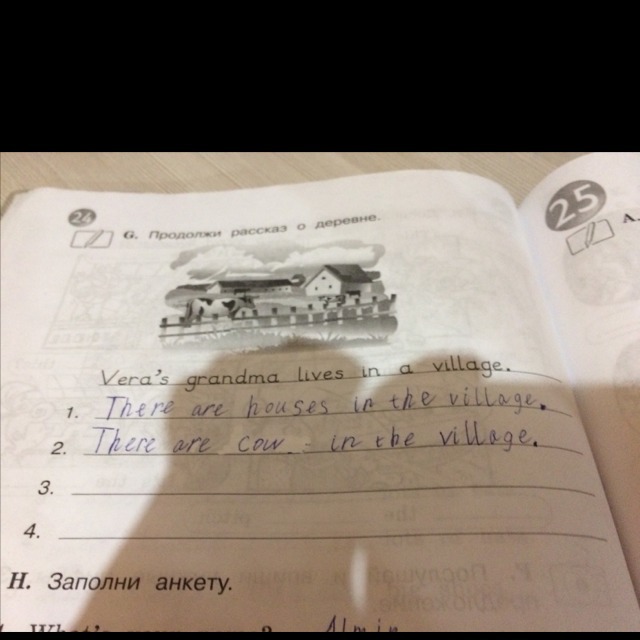 24
G. Продолжи рассказ о деревне.
Vera's grandma lives in a village.
1. There are houses in the village.
2. There are cow in the village.
3.
4.
H. Заполни анкету.
Almin
25
A.